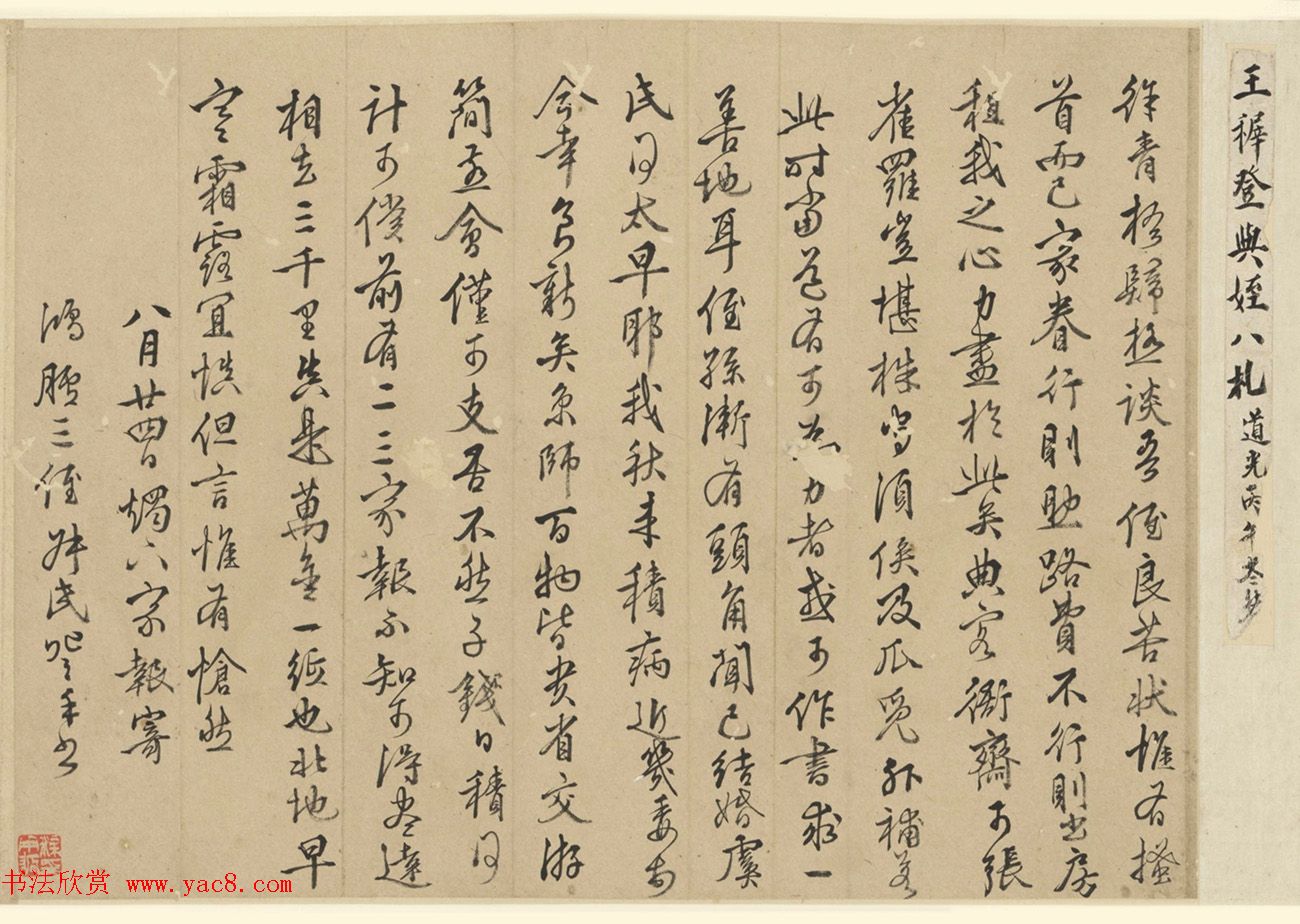 王穉登與姪八札 道光丙午
徐青楊歸極談吾侄良苦狀惟有搔
首而已家眷行則助路費不行則出房
租我之心力盡於此矣典客衙齋可張
雀羅豈堪株守須俟及瓜覓外補若
此時當道有可為力者或可作書求一
善地耳侄孫漸有頭角聞已結婚虞
民得太早耶我秋來積病近幾委頓
今幸良新矣京師百物皆貴省交游
簡燕會僅可支吾不然子錢日積得
計可償前有二三家報不知可得盡達
相去三千里真是萬金一紙也北地早
寒霜露宜慎但言惟有愴然
八月廿四日燭下家報寄
鴻臚三侄 叔
书法欣赏 www.yac8.com